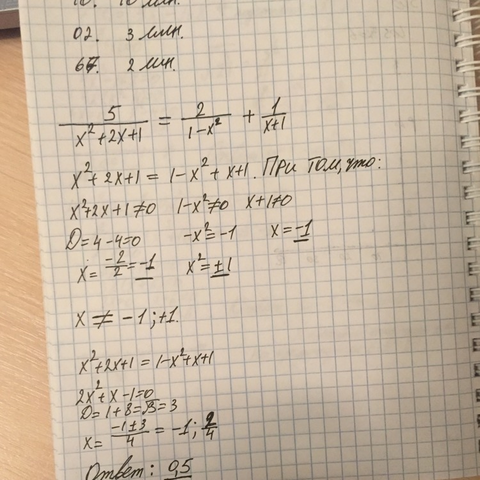 02. 3 млн.
67. 2 млн.
5/(x²+2x+1) = 2/(1-x²) + 1/(x+1)
x²+2x+1 = 1-x²+x+1. При том, что:
x²+2x+1≠0 1-x²≠0 x+1≠0
D=4-4=0 -x²=-1 x=-1
x=-2/2=-1 x²=±1
x ≠ -1; +1.
x²+2x+1=1-x²+x+1
2x²+x-1=0
D=1+8=√9=3
x=(-1±3)/4=-1; 2/4
Ответ: 0,5